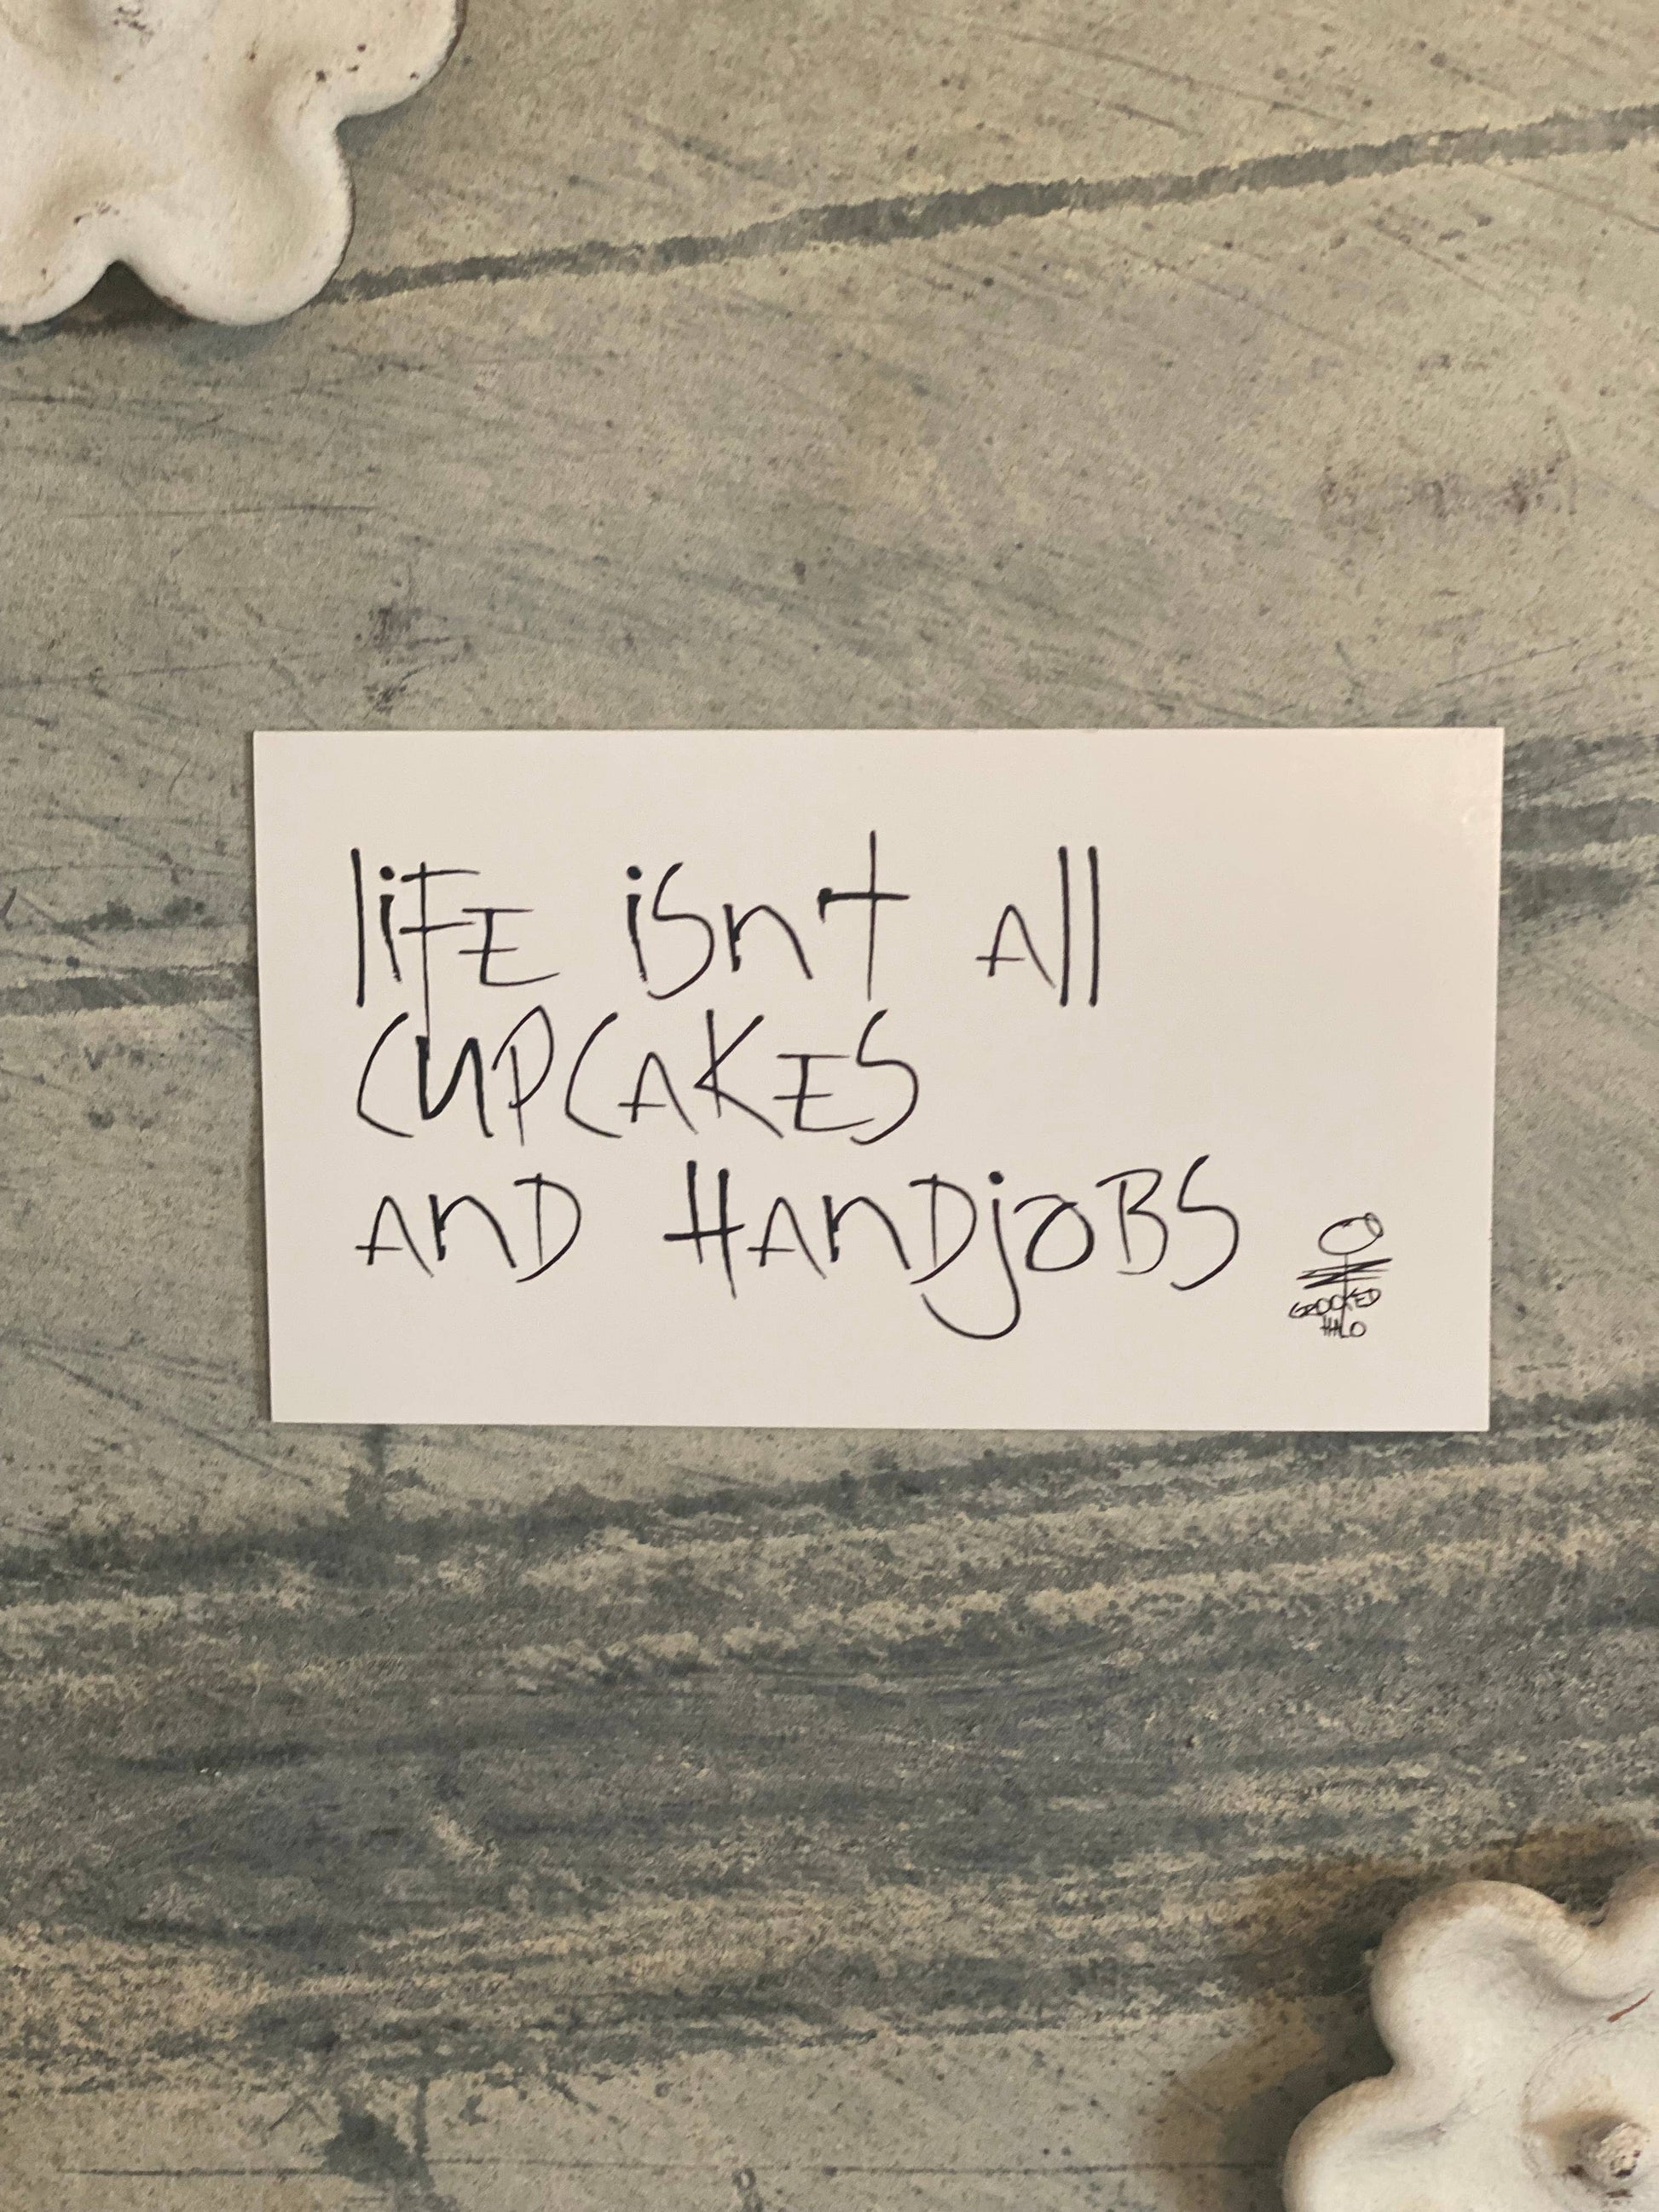 liFE isn't All
CUPCAKES
AnD HAnDjoBS
CROOKED
HALO